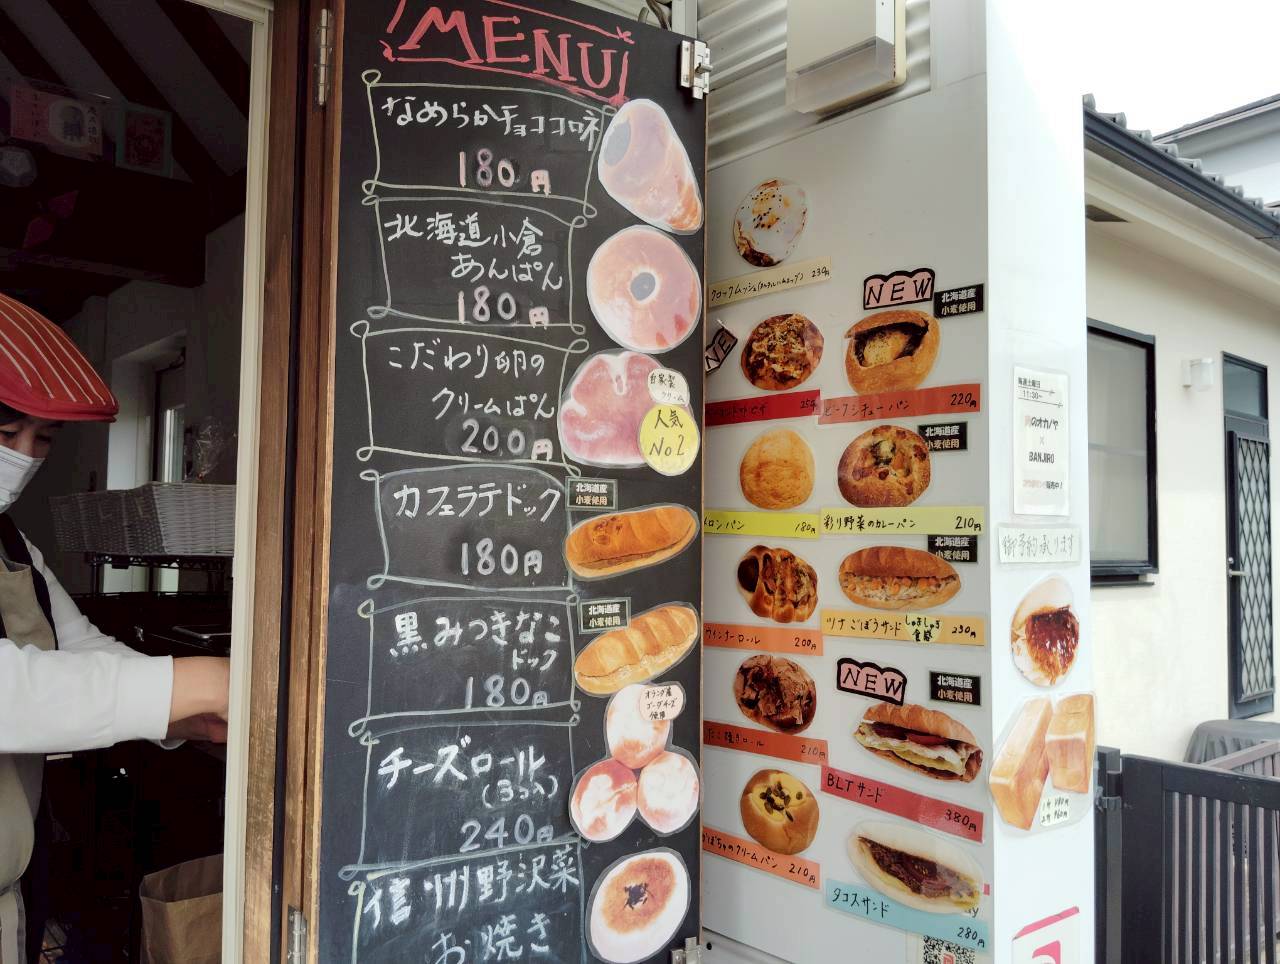 MENU
なめらかチョココロネ
180円
北海道小倉
あんぱん
180円
こだわり卵の
クリームぱん
200円
自家製
クリーム
人気
No.2
カフェラテドック
180円
北海道産
小麦使用
黒みつきなこ
ドック
180円
北海道産
小麦使用
チーズロール
(3コ入)
240円
オランダ産
ゴーダチーズ
使用
信州野沢菜
お焼き
クロックムッシュ
230円
NEW
北海道産
小麦使用
NEW
ビーフシチューパン 220円
メロンパン 180円
北海道産
小麦使用
彩り野菜のカレーパン 210円
ウインナーロール 200円
北海道産
小麦使用
ツナごぼうサンド
食感
230円
たこ焼きロール 210円
NEW
北海道産
小麦使用
BLTサンド 380円
かぼちゃのクリームパン 210円
タコスサンド 280円
毎週土曜日
11:30~
のオカノヤ
×
BANJIRO
御予約承ります